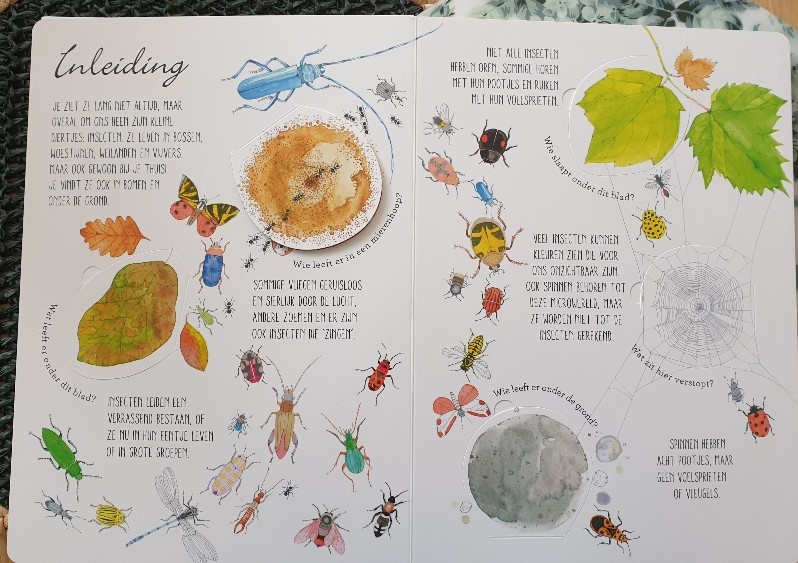 Inleiding
JE ZIET ZE LANG NIET ALTIJD, MAAR
OVERAL OM ONS HEEN ZIJN KLEINE
DIERTJES: INSECTEN. ZE LEVEN IN BOSSEN,
WOESTIJNEN, WEILANDEN EN VIJVERS
MAAR OOK GEWOON BIJ JE THUIS!
JE VINDT ZE OOK IN BOMEN EN
ONDER DE GROND.
Wie leeft er in een mierenhoop?
Wat leeft er onder dit blad?
SOMMIGE VLIEGEN GERUISLOOS
EN SIERLIJK DOOR DE LUCHT,
ANDERE ZOEMEN EN ER ZIJN
OOK INSECTEN DIE 'ZINGEN'.
INSECTEN LEIDEN EEN
VERRASSEND BESTAAN, OF
ZE NU IN HUN EENTJE LEVEN
OF IN GROTE GROEPEN.
NIET ALLE INSECTEN
HEBBEN OREN. SOMMIGE HOREN
MET HUN POOTJES EN RUIKEN
MET HUN VOELSPRIETEN.
Wie slaapt onder dit blad?
VEEL INSECTEN KUNNEN
KLEUREN ZIEN DIE VOOR
ONS ONZICHTBAAR ZIJN.
OOK SPINNEN BEHOREN TOT
DEZE MICROWERELD, MAAR
ZE WORDEN NIET TOT DE
INSECTEN GEREKEND.
Wat zit hier verstopt?
Wie leeft er onder de grond?
SPINNEN HEBBEN
ACHT POOTJES, MAAR
GEEN VOELSPRIETEN
OF VLEUGELS.